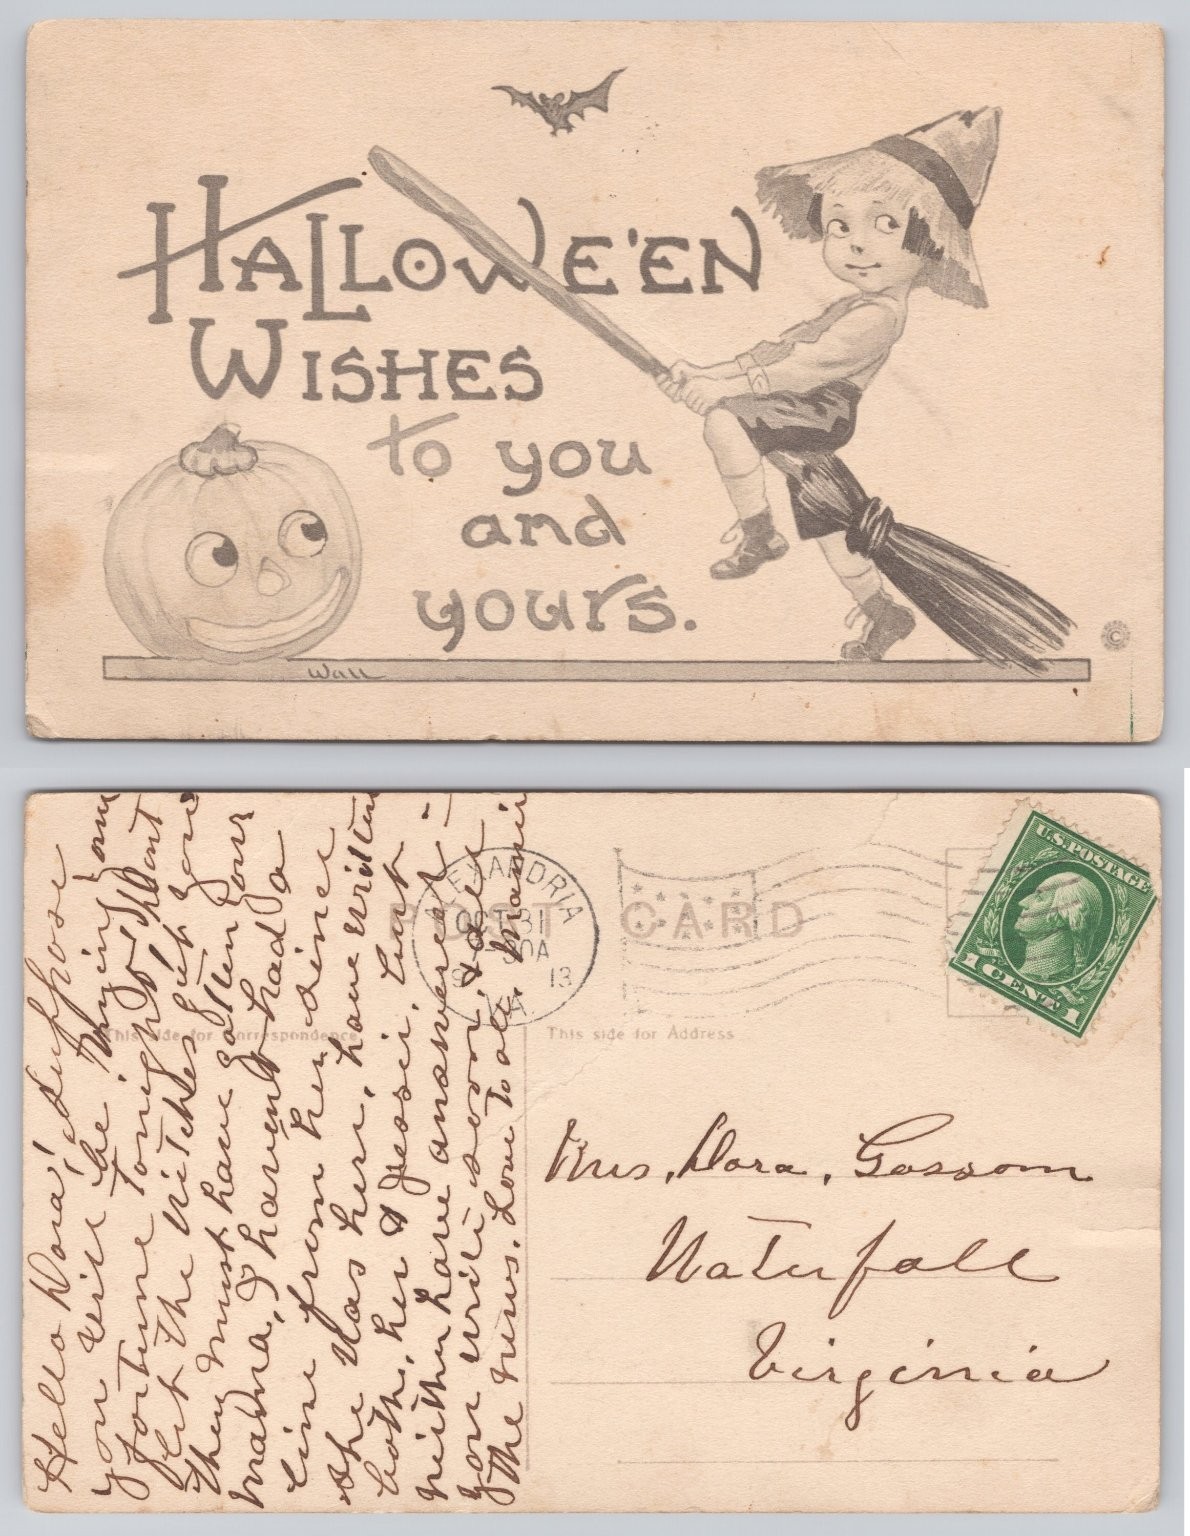 HALLOWE'EN
WISHES
to you
and
yours.
Wall
©
POST CARD
ALEXANDRIA
OCT 31
30A
13
VA
U.S. POSTAGE
1 CENT 1
This side for Correspondence
This side for Address
Hello Dora! Suppose
you will be trying your
fortune tonight, don't
let the witches get you
They must have gotten your
mama, I haven't had a
line from her since
she was here, have written
both, her & Jessi, but
neither have answered -
you write soon, & tell
the news. Love to all. Mamie
Mrs. Dora. Gossom
Waterfall
Virginia